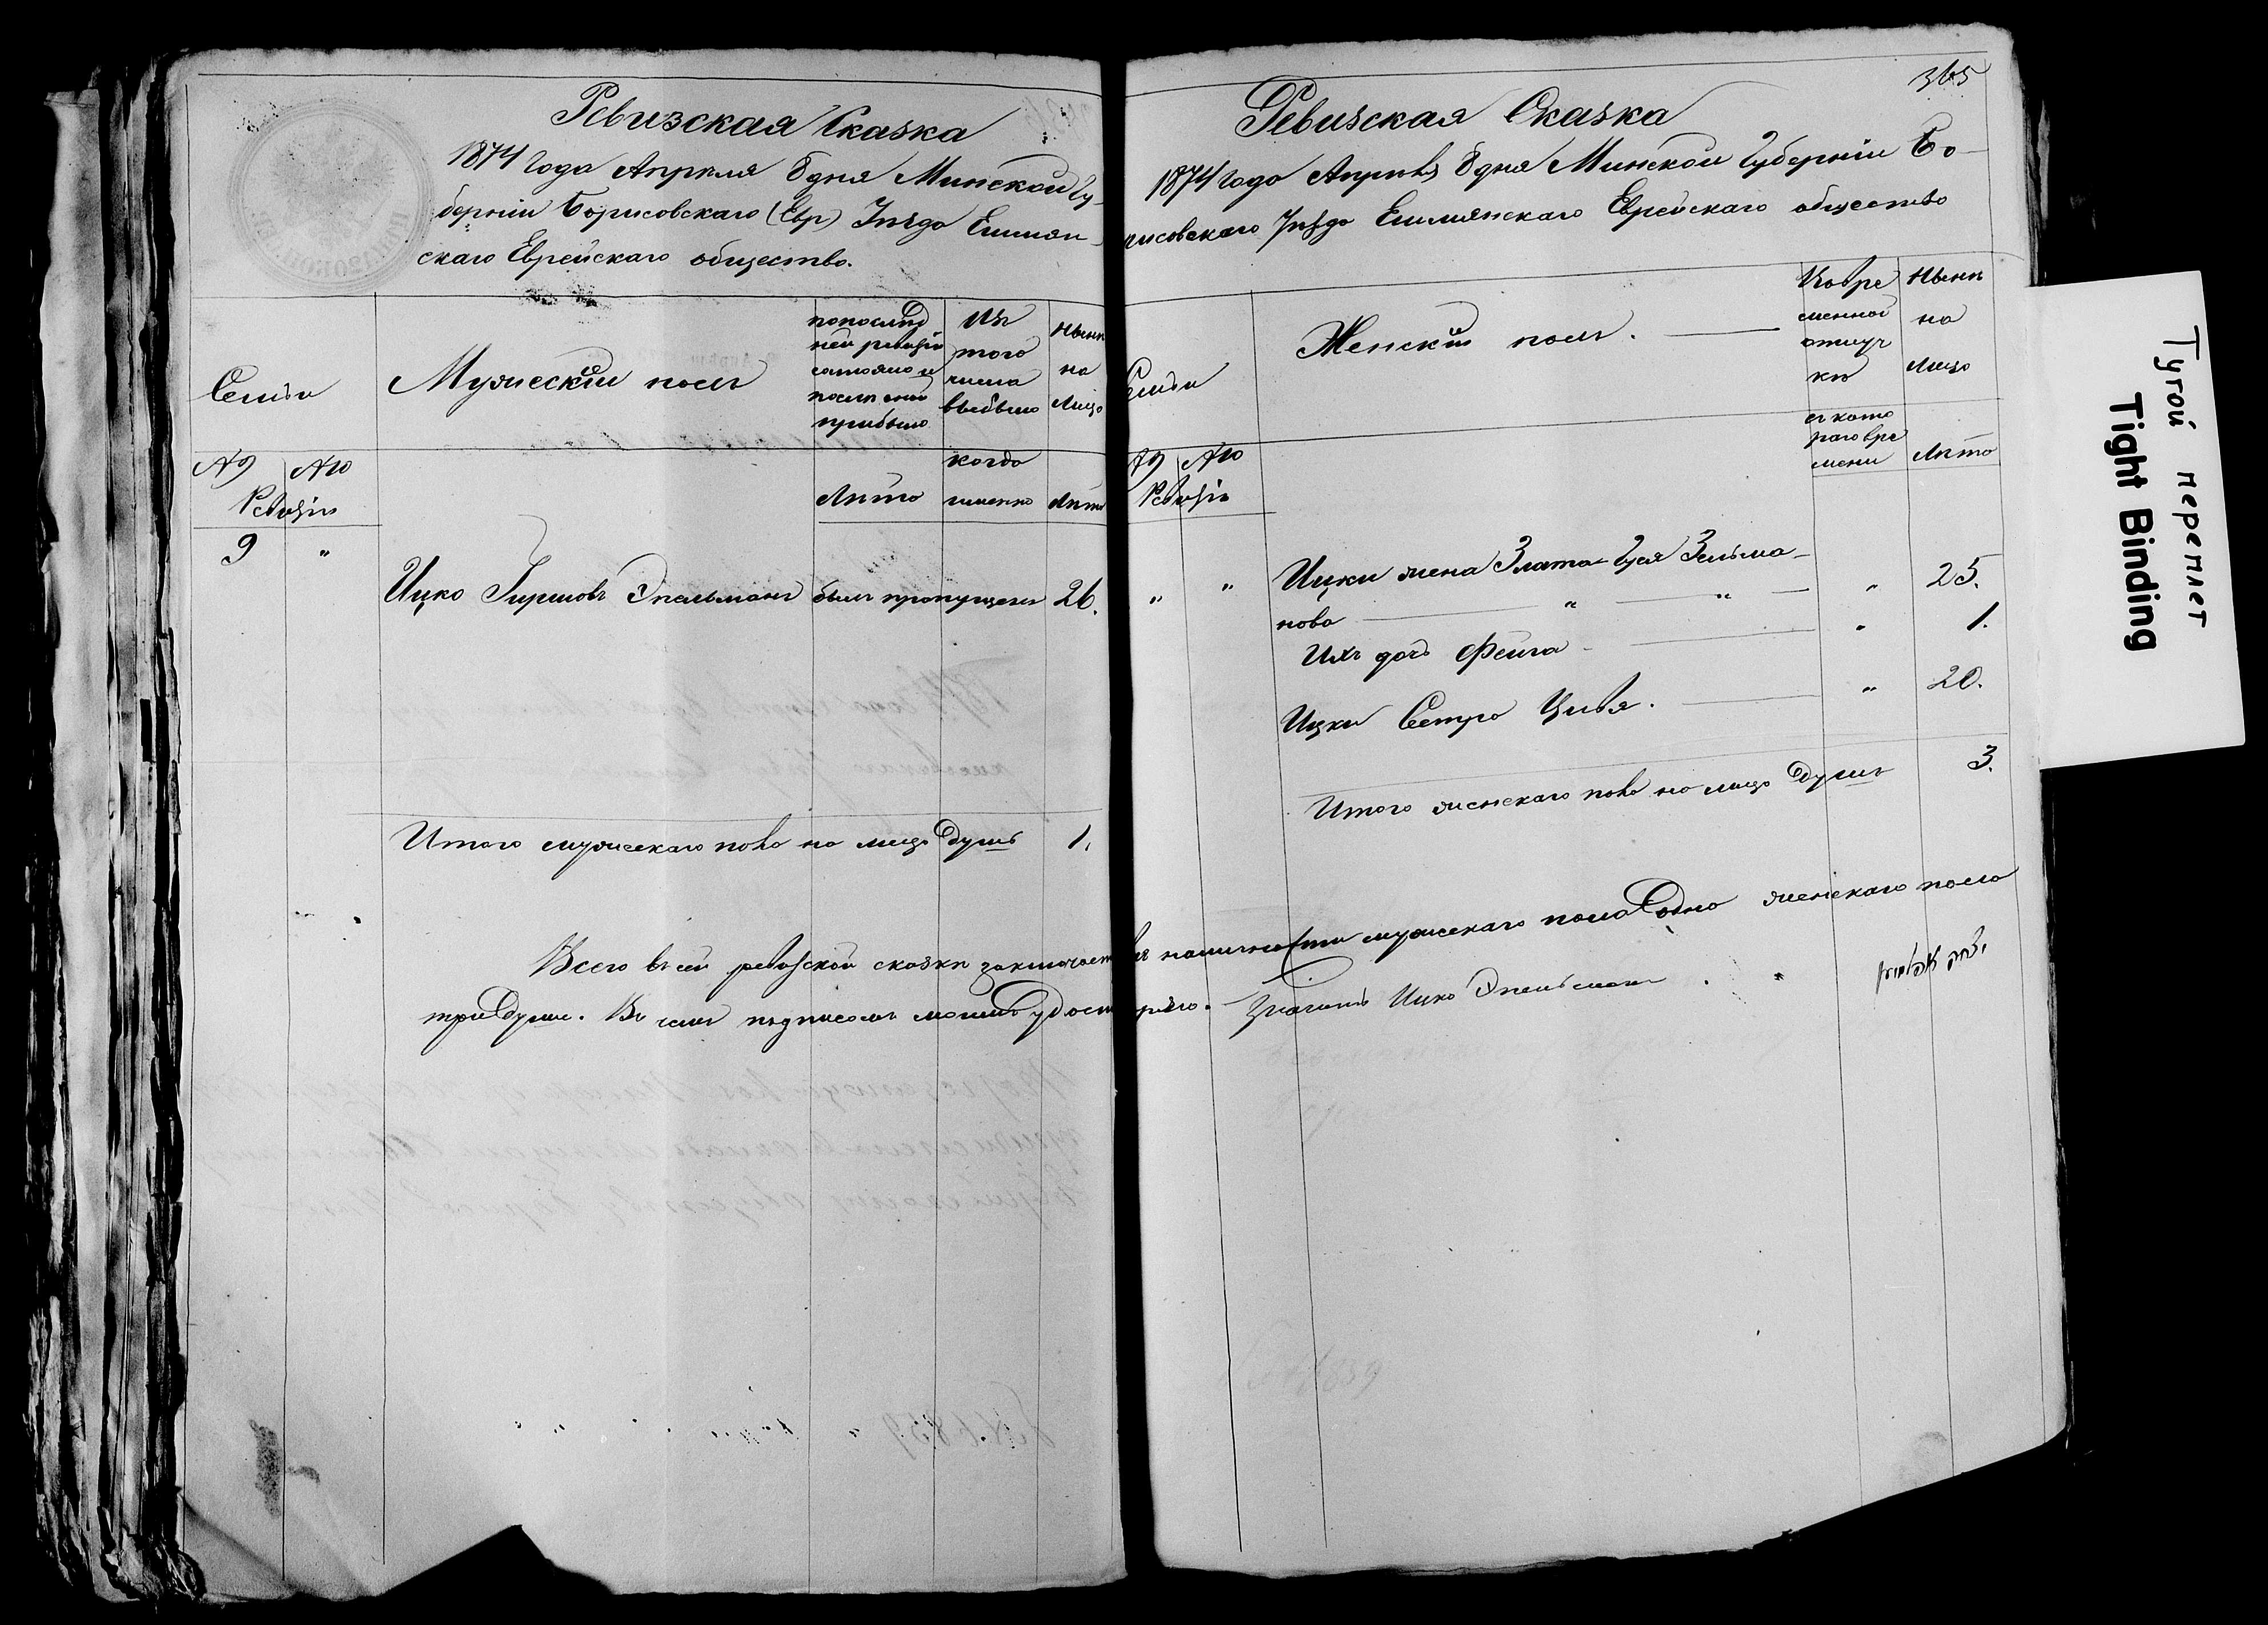 Ревизская Сказка
1874 года Апреля 8 дня Минской Гу-
берніи Борисовскаго (Евр) Уѣзда Есьмян-
скаго Еврейскаго общество.
Семьи
Мужескій полъ
по послѣд
ней ревизіи
состояло и
послѣ оной
прибыло
Изъ
того
числа
выбыло
Нынѣ
на
Лицо
№ 9 № 10
Ревизіи
Лѣта
когда
именно
Лѣта
9 "
Ицко Гиршовъ Эпельманъ былъ пропущенъ 26.
Итого мужескаго пола на лицо Душъ 1.
365
Ревизская Сказка
1874 года Апрѣля 8 дня Минской Губерніи Бо-
рисовскаго Уѣзда Есьмянскаго Еврейскаго общество
Семьи
Женскій полъ.
Во вре
менной
отлуч
кѣ
Нынѣ
на
Лицо
№ 9 № 10
Ревизіи
съ кото
раго вре
мени
Лѣта
" " Ицки жена Злата-Гуся Зельма- " 25.
нова " "
Ихъ дочь Фейга - " 1.
Ицки Сестра Цивя. " 20.
Итого женскаго пола на лицо Душъ 3.
Всего въ сей ревизской сказки заключается въ наличности мужескаго пола Одна женскаго пола
три Души. Въ чемъ подписомъ моимъ удостовѣряю. Значитъ Ицко Эпельманъ
יצחק אפלמאן
Тугой переплет
Tight Binding